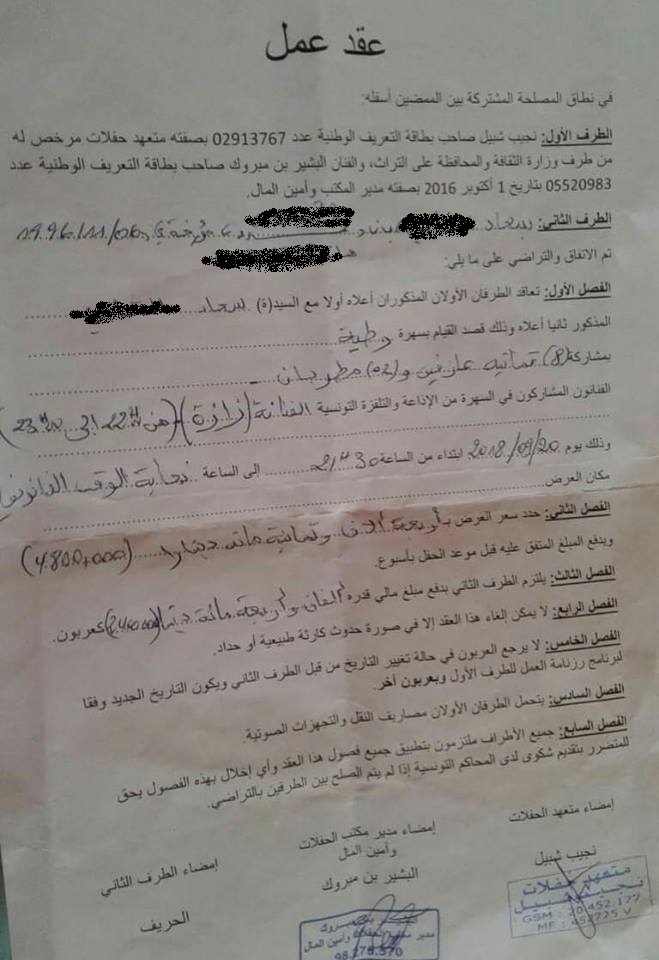 عقد عمل
في نطاق المصلحة المشتركة بين الممضين أسفله:
الطرف الأول: نجيب شبيل صاحب بطاقة التعريف الوطنية عدد 02913767 بصفته متعهد حفلات مرخص له
من طرف وزارة الثقافة والمحافظة على التراث، والفنان البشير بن مبروك صاحب بطاقة التعريف الوطنية عدد
05520983 بتاريخ 1 أكتوبر 2016 بصفته مدير المكتب وأمين المال.
الطرف الثاني: سعاد
تم الاتفاق والتراضي على ما يلي:
الفصل الأول: تعاقد الطرفان الأولان المذكوران أعلاه أولا مع السيد(ة) سعاد
المذكور ثانيا أعلاه وذلك قصد القيام بسهرة وطية
بمشاركة (8) ثمانية عازفين و(02) مطربان
الفنانون المشاركون في السهرة من الإذاعة والتلفزة التونسية الفنانة (زازة) (من 22H إلى 23H30)
وذلك يوم 2018/09/20 ابتداء من الساعة 21H30 إلى الساعة نهاية الوقت القانوني
مكان العرض
الفصل الثاني: حدد سعر العرض بـ أربعة آلاف وثمانية مائة دينار (4.800,000)
ويدفع المبلغ المتفق عليه قبل موعد الحفل بأسبوع.
الفصل الثالث: يلتزم الطرف الثاني بدفع مبلغ مالي قدره ألفان وأربعة مائة دينار كعربون.
الفصل الرابع: لا يمكن إلغاء هذا العقد إلا في صورة حدوث كارثة طبيعية أو حداد.
الفصل الخامس: لا يرجع العربون في حالة تغيير التاريخ من قبل الطرف الثاني ويكون التاريخ الجديد وفقا
لبرنامج رزنامة العمل للطرف الأول وبعربون آخر.
الفصل السادس: يتحمل الطرفان الأولان مصاريف النقل والتجهزات الصوتية.
الفصل السابع: جميع الأطراف ملتزمون بتطبيق جميع فصول هذا العقد وأي إخلال بهذه الفصول يحق
للمتضرر بتقديم شكوى لدى المحاكم التونسية إذا لم يتم الصلح بين الطرفين بالتراضي.
إمضاء متعهد الحفلات
نجيب شبيل
إمضاء مدير مكتب الحفلات
وأمين المال
البشير بن مبروك
إمضاء الطرف الثاني
الحريف
متعهد حفلات
نجيب شبيل
GSM : 20 452 177
MF : 452725 V
مدير مكتب الحفلات وأمين المال
98.275.570